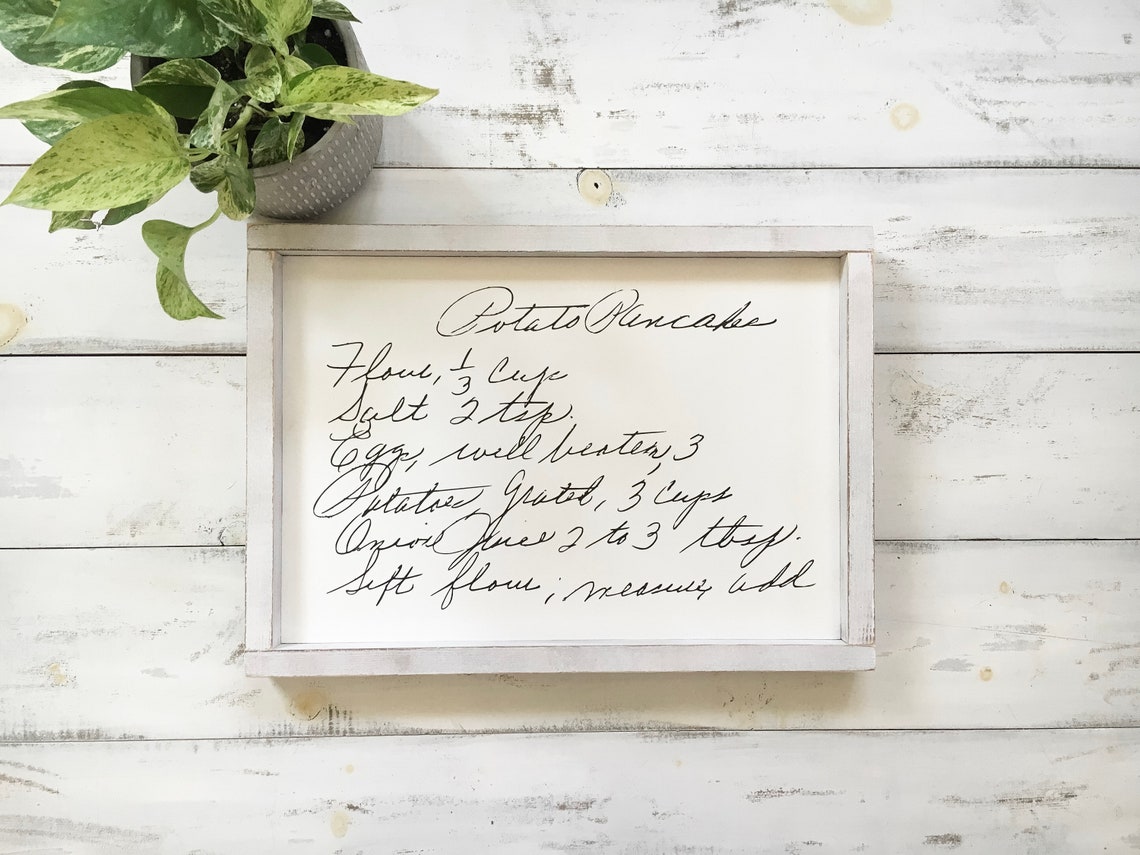 Potato Pancakes
Flour, 1/3 cup
Salt 2 tsp.
Eggs, well beaten, 3
Potatoes, Grated, 3 cups
Onion Juice 2 to 3 tbsp.
Sift flour; measure, add